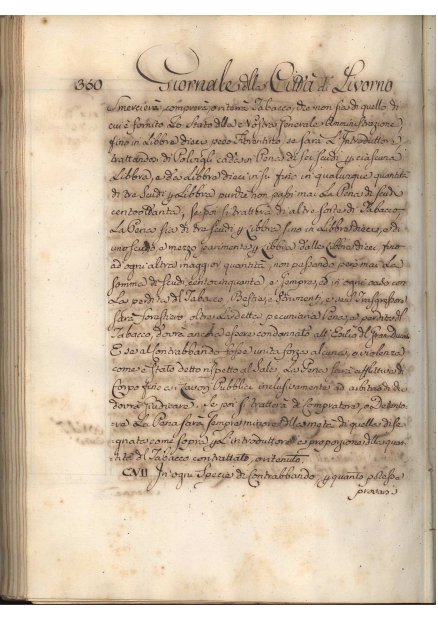 360 Giornale della Città di Livorno
smercierà, comprerà, o riterrà Tabacco, che non sia di quello, di
cui è fornito Lo Stato dalla Nostra Generale Amministrazione,
fino in Libbre dieci peso Fiorentino, se sarà L'Introduttore
trattandosi di cada in Pena di sei scudi p ciascuna
Libbra, e da Libbre dieci in su fino in qualunque quantità
di tre Scudi p Libbra purchè non passi mai La Pena di scudi
cento ottanta, se poi si tratterà di altre sorte di Tabacco
La Pena sia di tre scudi p Libbra fino in Libbre dieci, e di
uno scudo e mezzo parimente p Libbra dalle Libbre dieci fino
ad ogni altra maggior quantità, non passando però mai La
somma di Scudi centocinquanta e sempre, ed in ogni caso con
La perdita del Tabacco, Bestie, e Strumenti, e se il Trasgressore
sarà forestiero oltre La detta pecuniaria Pena, e perdita del
Tabacco, dovrà anche essere condannato all' Esilio del Gran Ducato
E se al contrabbando fosse unita forza alcuna, o violenza
come è stato detto rispetto al Sale, La Pena sarà afflittiva di
Corpo fino ai Lavori Pubblici inclusivamente ad arbitrio di
dovrà giudicare. Se poi si tratterà di Compratore, o Detento-
re La Pena sarà sempre minore della metà di quelle di se-
gnate come sopra p L'introduttore e proporzione della quan-
tità del Tabacco contrattato, o ritenuto.
CVII In ogni Specie di Contrabbando, p quanto possesse
provarsi